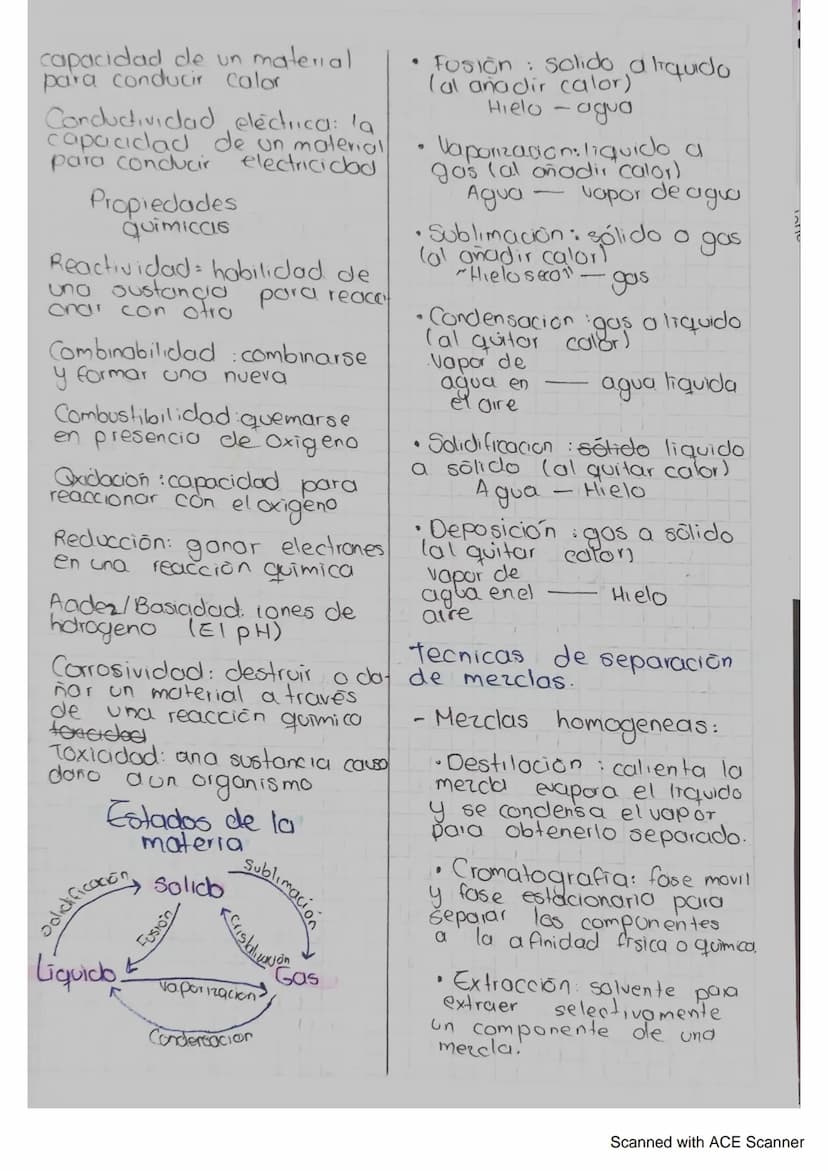 capacidad de un material
para conducir calor
Conductividad eléctrica: la
capacidad de un material
para conducir electricidad
Propiedades
químicas
Reactividad= habilidad de
una sustancia para reacci
onar con otra
Combinabilidad : combinarse
y formar una nueva
Combustibilidad: quemarse
en presencia de oxigeno
Oxidación : capacidad para
reaccionar con el oxigeno
Reducción: ganar electrones
en una reacción química
Acidez/Basicidad: iones de
hidrogeno (El pH)
Corrosividad: destruir o da-
ñar un material a través
de una reacción química
toxicidad
Toxicidad: una sustancia causa
daño a un organismo
Estados de la
materia
Solidificación
Solido
Sublimación
Fusión
Cristalización
Liquido
Vaporización
Gas
Condensación
• Fusión : solido a liquido
(al añadir calor)
Hielo - agua
• Vaporización: liquido a
gas (al añadir calor)
Agua — vapor de agua
• Sublimación: sólido a gas
(al añadir calor)
"Hielo seco" — gas
• Condensacion : gas a liquido
(al quitar calor)
Vapor de
agua en — agua liquida
el aire
• Solidificacion : sólido liquido
a sólido (al quitar calor)
Agua - Hielo
• Deposición : gas a sólido
(al quitar calor)
vapor de
agua en el — Hielo
aire
Tecnicas de separación
de mezclas.
- Mezclas homogeneas:
• Destilación : calienta la
mezcla evapora el liquido
y se condensa el vapor
para obtenerlo separado.
• Cromatografía: fase movil
y fase estacionaria para
separar los componentes
a la afinidad física o química.
• Extracción: solvente para
extraer selectivamente
un componente de una
mezcla.
Scanned with ACE Scanner